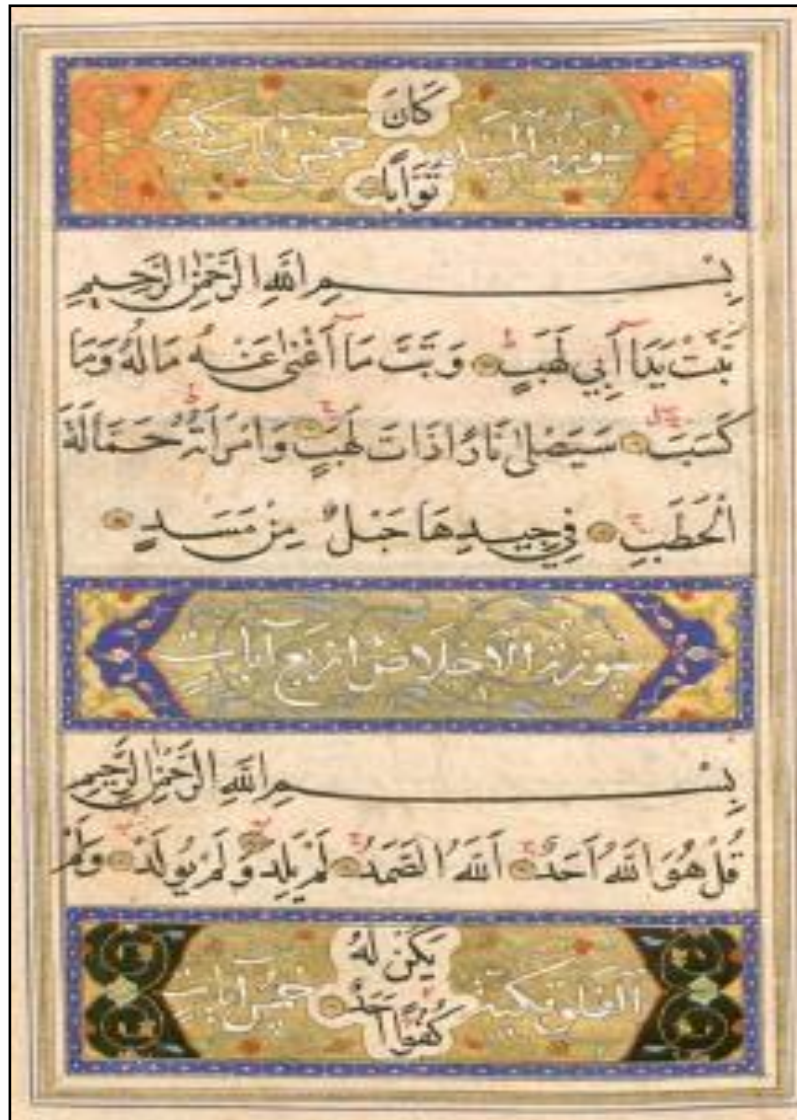 كَانَ
سورة المسد خمس آيات مكية
تَوَّابًا
بِسْمِ اللَّهِ الرَّحْمٰنِ الرَّحِيمِ
تَبَّتْ يَدَآ أَبِي لَهَبٍ وَتَبَّ مَآ أَغْنٰى عَنْهُ مَالُهُ وَمَا
كَسَبَ سَيَصْلٰى نَارًا ذَاتَ لَهَبٍ وَامْرَأَتُهُ حَمَّالَةَ
الْحَطَبِ فِي جِيدِهَا حَبْلٌ مِنْ مَسَدٍ
سورة الاخلاص اربع آيات
بِسْمِ اللَّهِ الرَّحْمٰنِ الرَّحِيمِ
قُلْ هُوَ اللَّهُ أَحَدٌ اَللَّهُ الصَّمَدُ لَمْ يَلِدْ وَلَمْ يُولَدْ وَلَمْ
يَكُنْ لَهُ
الفلق مكية خمس آيات
كُفُوًا أَحَدٌ